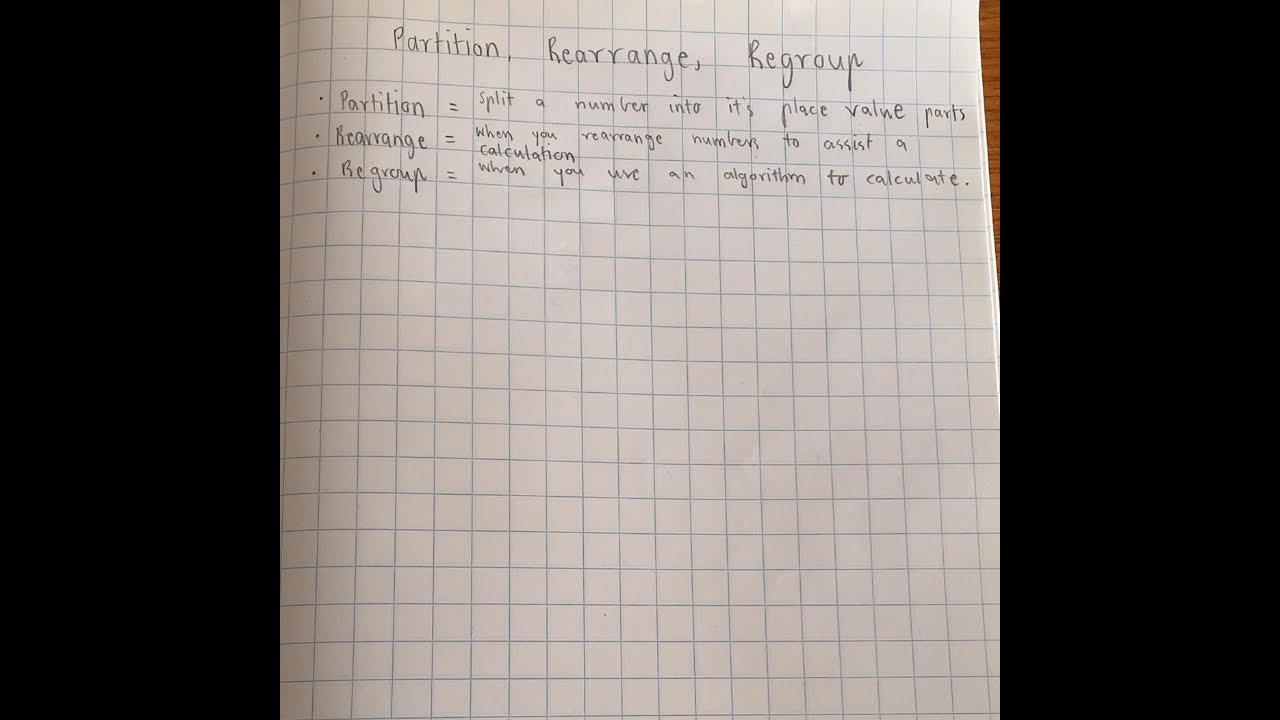 Partition, Rearrange, Regroup
· Partition = split a number into it's place value parts
· Rearrange = when you rearrange numbers to assist a
calculation
· Regroup = when you use an algorithm to calculate.